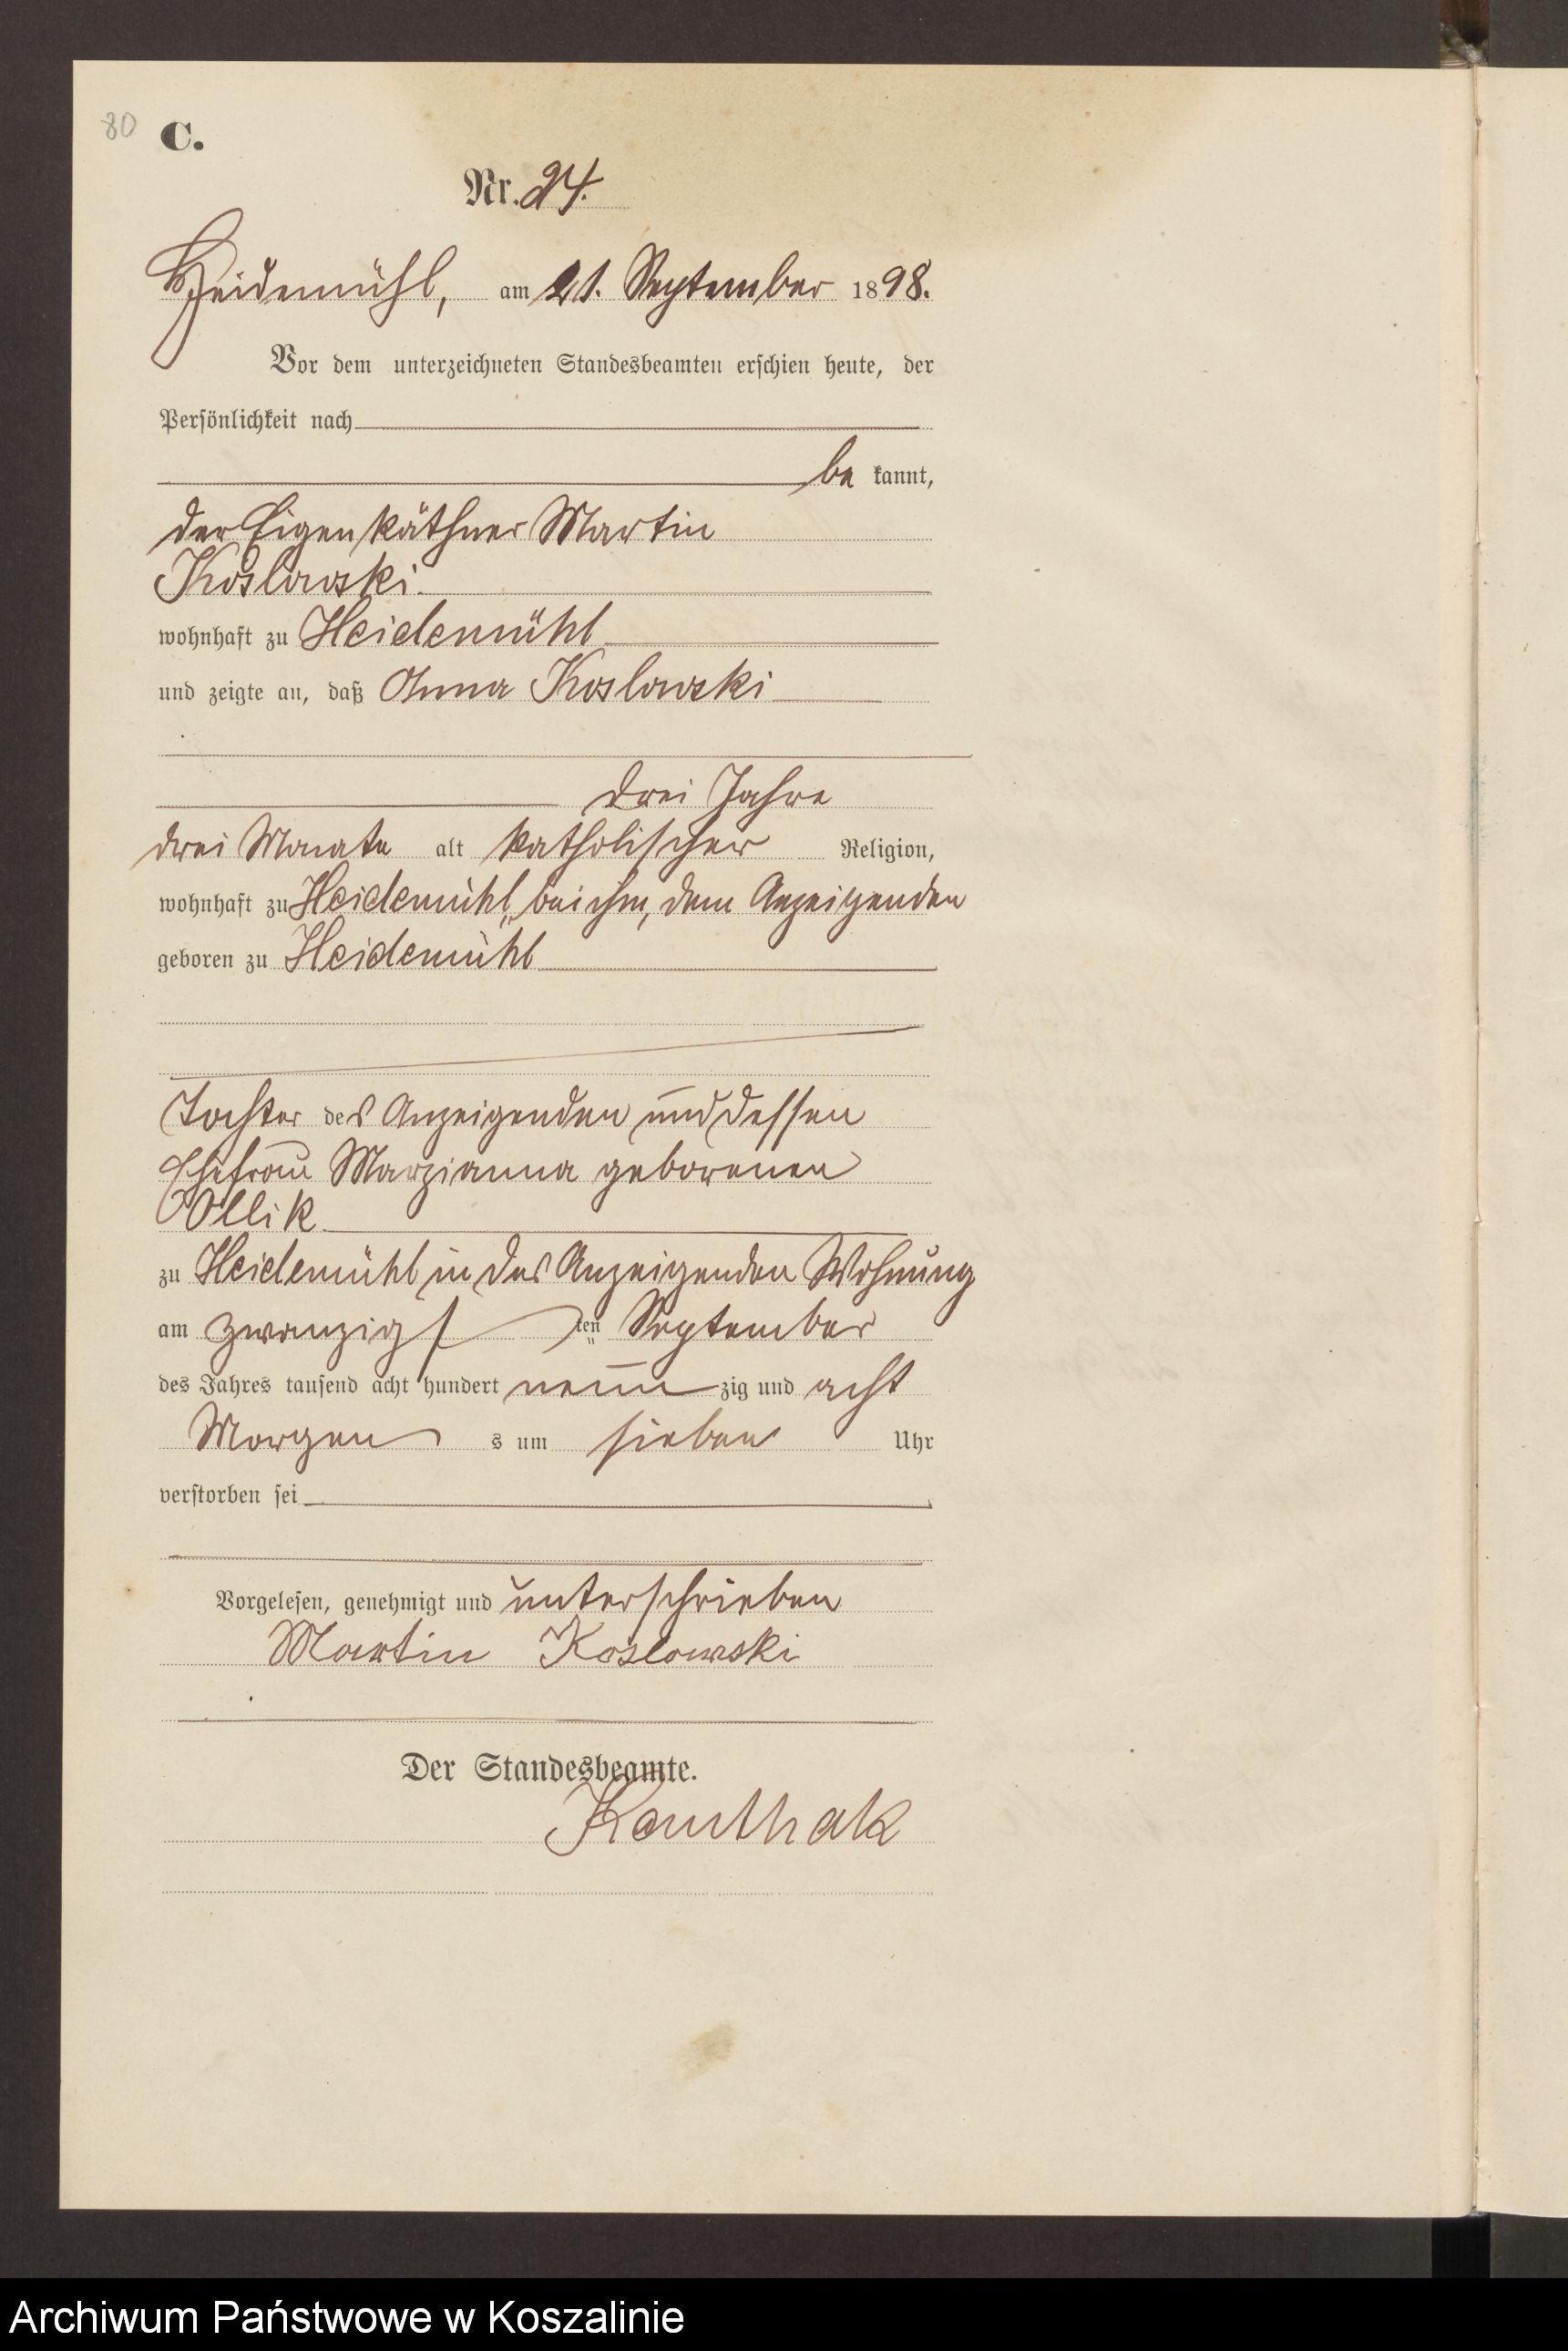 80 C.
Nr. 24.
Heidemühl, am 21. September 1898.
Vor dem unterzeichneten Standesbeamten erschien heute, der
Persönlichkeit nach
be kannt,
der Eigenkäthner Martin
Koslowski
wohnhaft zu Heidemühl
und zeigte an, daß Anna Koslowski
drei Jahre
drei Monate alt katholischer Religion,
wohnhaft zu Heidemühl, bei ihm, dem Anzeigenden
geboren zu Heidemühl
Tochter des Anzeigenden und dessen
Ehefrau Marzianna geborenen
Ollik
zu Heidemühl in des Anzeigenden Wohnung
am zwanzigs ten September
des Jahres tausend acht hundert neun zig und acht
Morgen s um sieben Uhr
verstorben sei
Vorgelesen, genehmigt und unterschrieben
Martin Koslowski
Der Standesbeamte.
Kanthak
Archiwum Państwowe w Koszalinie